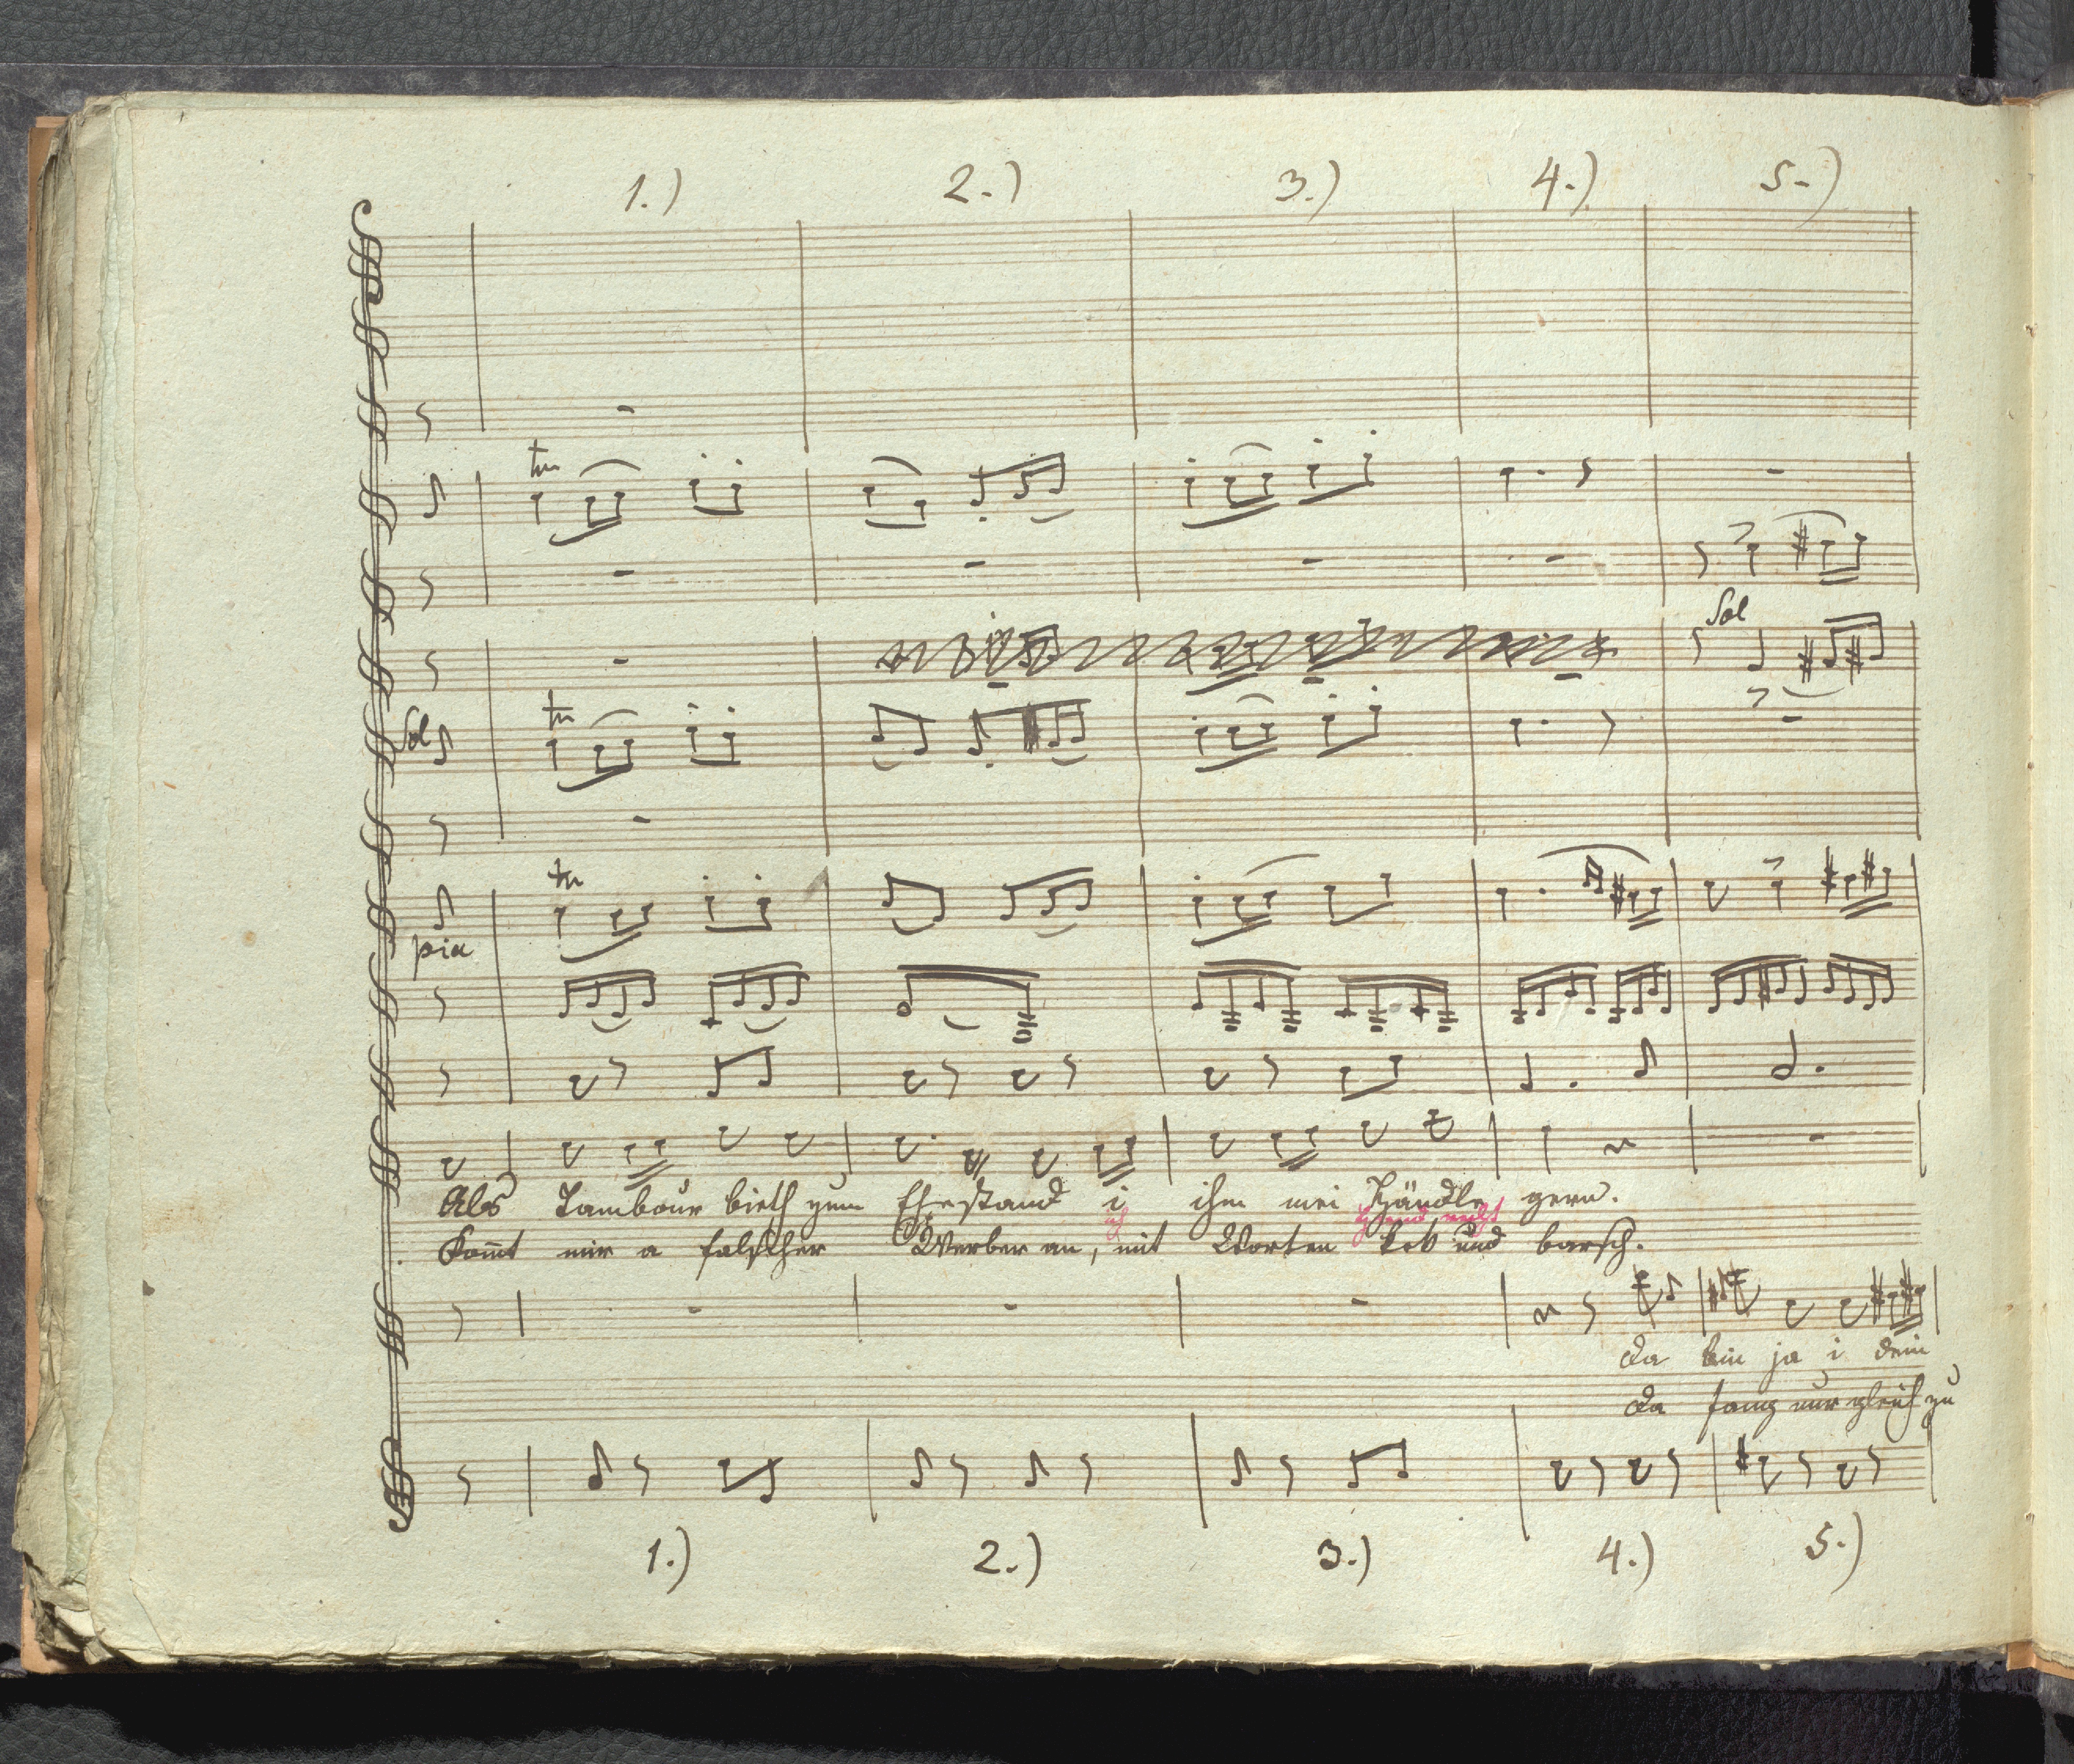 1.) 2.) 3.) 4.) 5.)
tr
Sol
Sol tr
tr
pia
Als Tambour bieth zum Ehestand i ihm mei Händle gern.
ich
Kom̄t mir a falscher Werber an, mit Worten kek und barsch.
Da bin ja i dein
Da fang nur gleich zu
1.) 2.) 3.) 4.) 5.)